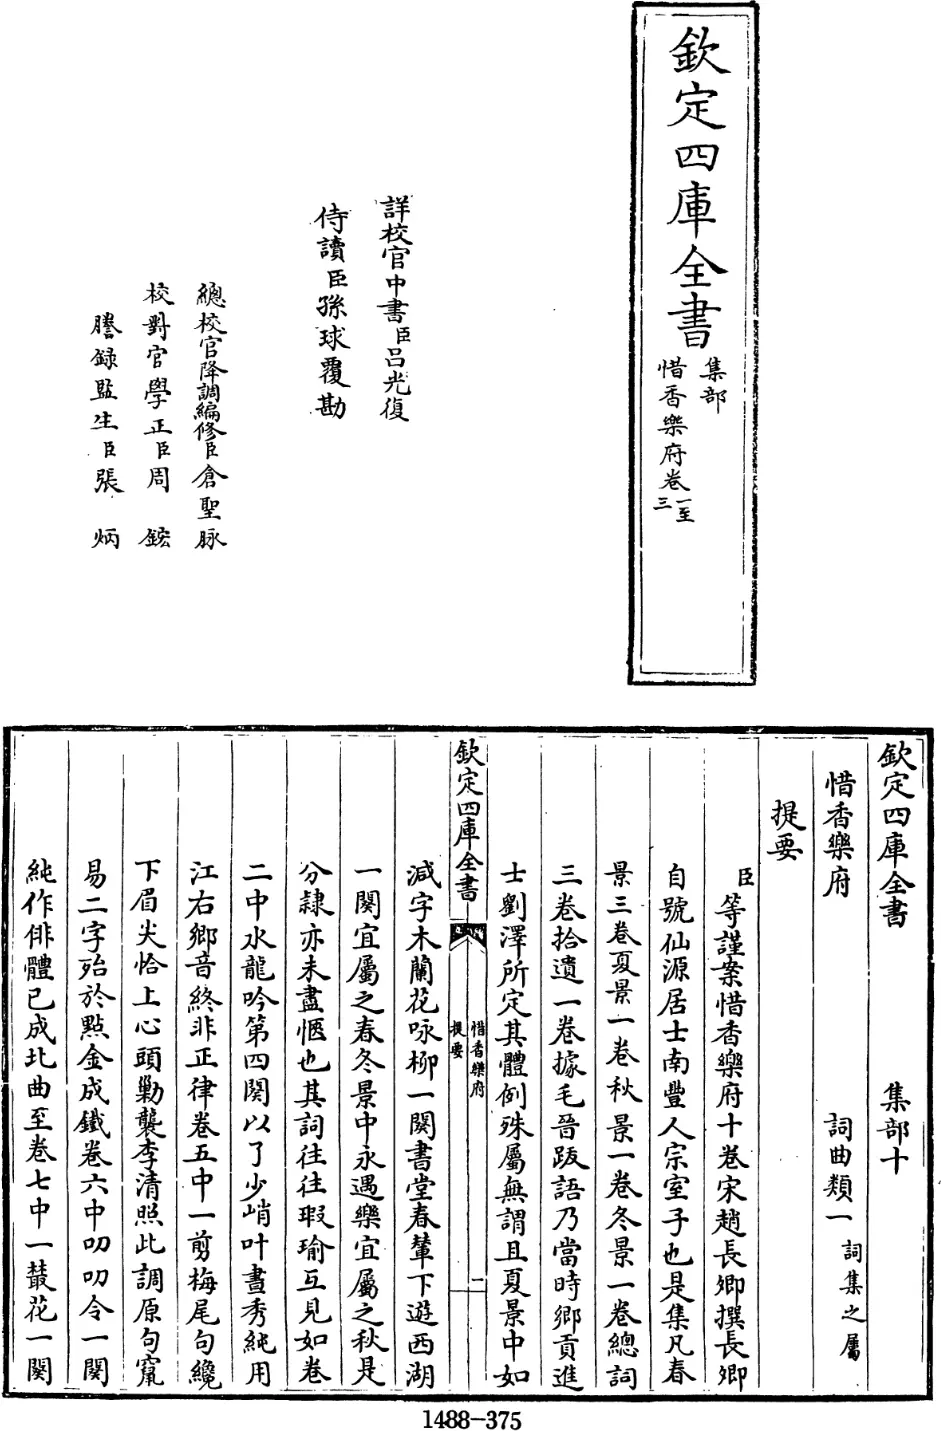 欽定四庫全書
集部
惜香樂府卷一至三
詳校官中書臣呂光復
侍讀臣孫球覆勘
總校官降調編修臣倉聖脉
校對官學正臣周鋐
謄録監生臣張炳
欽定四庫全書 集部十
惜香樂府 詞曲類一 詞集之屬
提要
臣等謹案惜香樂府十卷宋趙長卿撰長卿
自號仙源居士南豐人宗室子也是集凡春
景三卷夏景一卷秋景一卷冬景一卷總詞
三卷拾遺一卷據毛晉跋語乃當時鄉貢進
士劉澤所定其體例殊屬無謂且夏景中如
減字木蘭花咏柳一闋書堂春輦下遊西湖
欽定四庫全書
惜香樂府
提要
一
一闋宜屬之春冬景中永遇樂宜屬之秋是
分隷亦未盡愜也其詞往往瑕瑜互見如卷
二中水龍吟第四闋以了少峭叶晝秀純用
江右鄉音終非正律卷五中一剪梅尾句纔
下眉尖恰上心頭勦襲李清照此調原句竄
易二字殆於點金成鐵卷六中叨叨令一闋
純作俳體已成北曲至卷七中一叢花一闋
1488-375